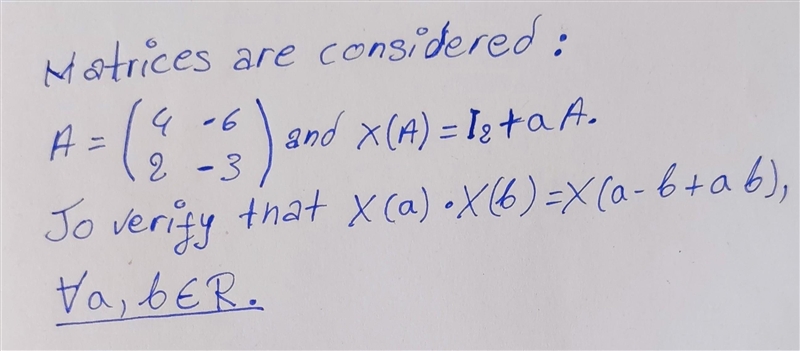 Matrices are considered:
A = (4 -6
2 -3) and X(A) = I₂ + aA.
To verify that X(a) · X(b) = X(a - b + ab),
∀a, b ∈ R.